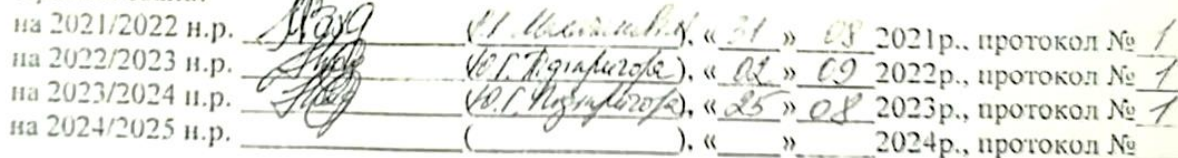 на 2021/2022 н.р. ( ), « 31 » 08 2021р., протокол № 1
на 2022/2023 н.р. (Ю.Г. Підпригора), « 02 » 09 2022р., протокол № 1
на 2023/2024 н.р. (Ю.Г. Підпригора), « 25 » 08 2023р., протокол № 1
на 2024/2025 н.р. ( ), « » 2024р., протокол №